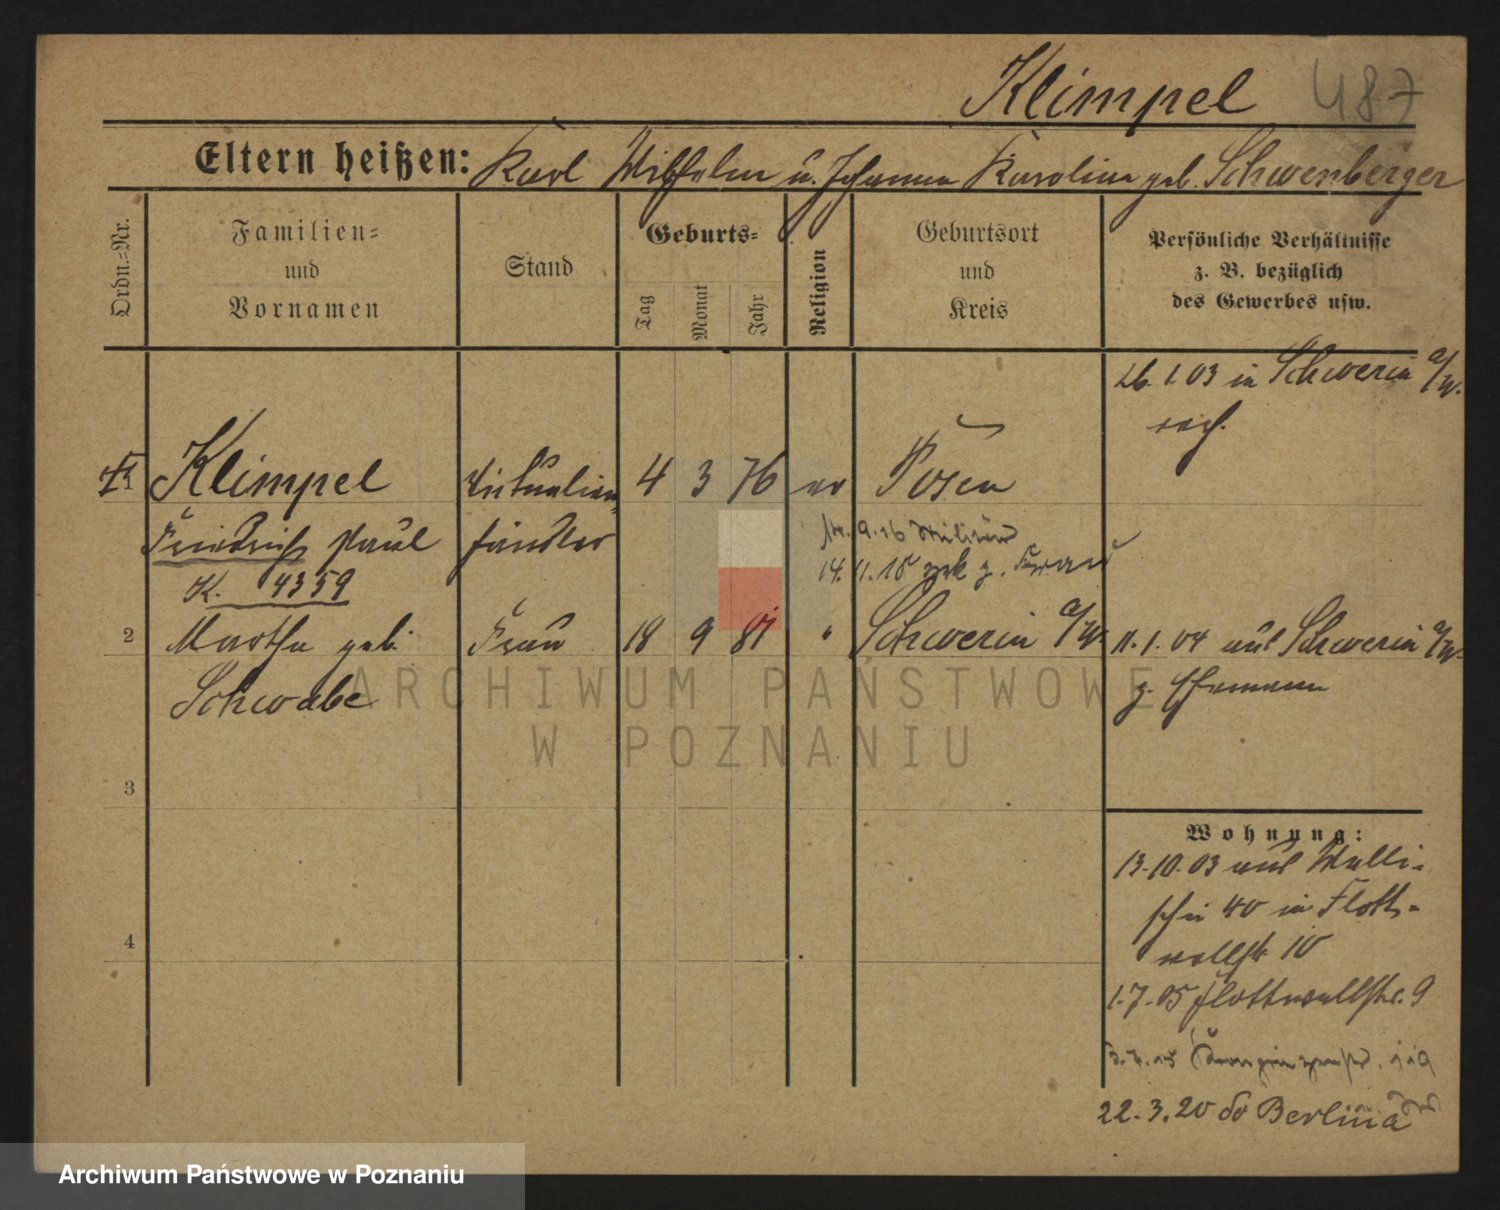 Klimpel 487
Eltern heißen: Karl Wilhelm u. Johanna Karolina geb. Schwenberger
Ordn.-Nr.
Familien-
und
Vornamen
Stand
Geburts-
Tag
Monat
Jahr
Religion
Geburtsort
und
Kreis
Persönliche Verhältnisse
z. B. bezüglich
des Gewerbes usw.
26. 1. 03 in Schwerin a/W.
Klimpel Viktualien- 4 3 76 ev Posen
Friedrich Paul händler
9.16 Militär
14. 11. 18 zrk z. Frau
K. 4359
2 Martha geb. Frau 18 9 81 " Schwerin a/W. 11. 1. 04 aus Schwerin a/W.
Schwabe z. Ehemann
ARCHIWUM PAŃSTWOWE
W POZNANIU
3
4
Wohnung:
13.10.03 aus Walli-
schei 40 in Flott-
wellstr. 10
1.7.05 Flottwellstr. 9
22.3.20 do Berlin
Archiwum Państwowe w Poznaniu